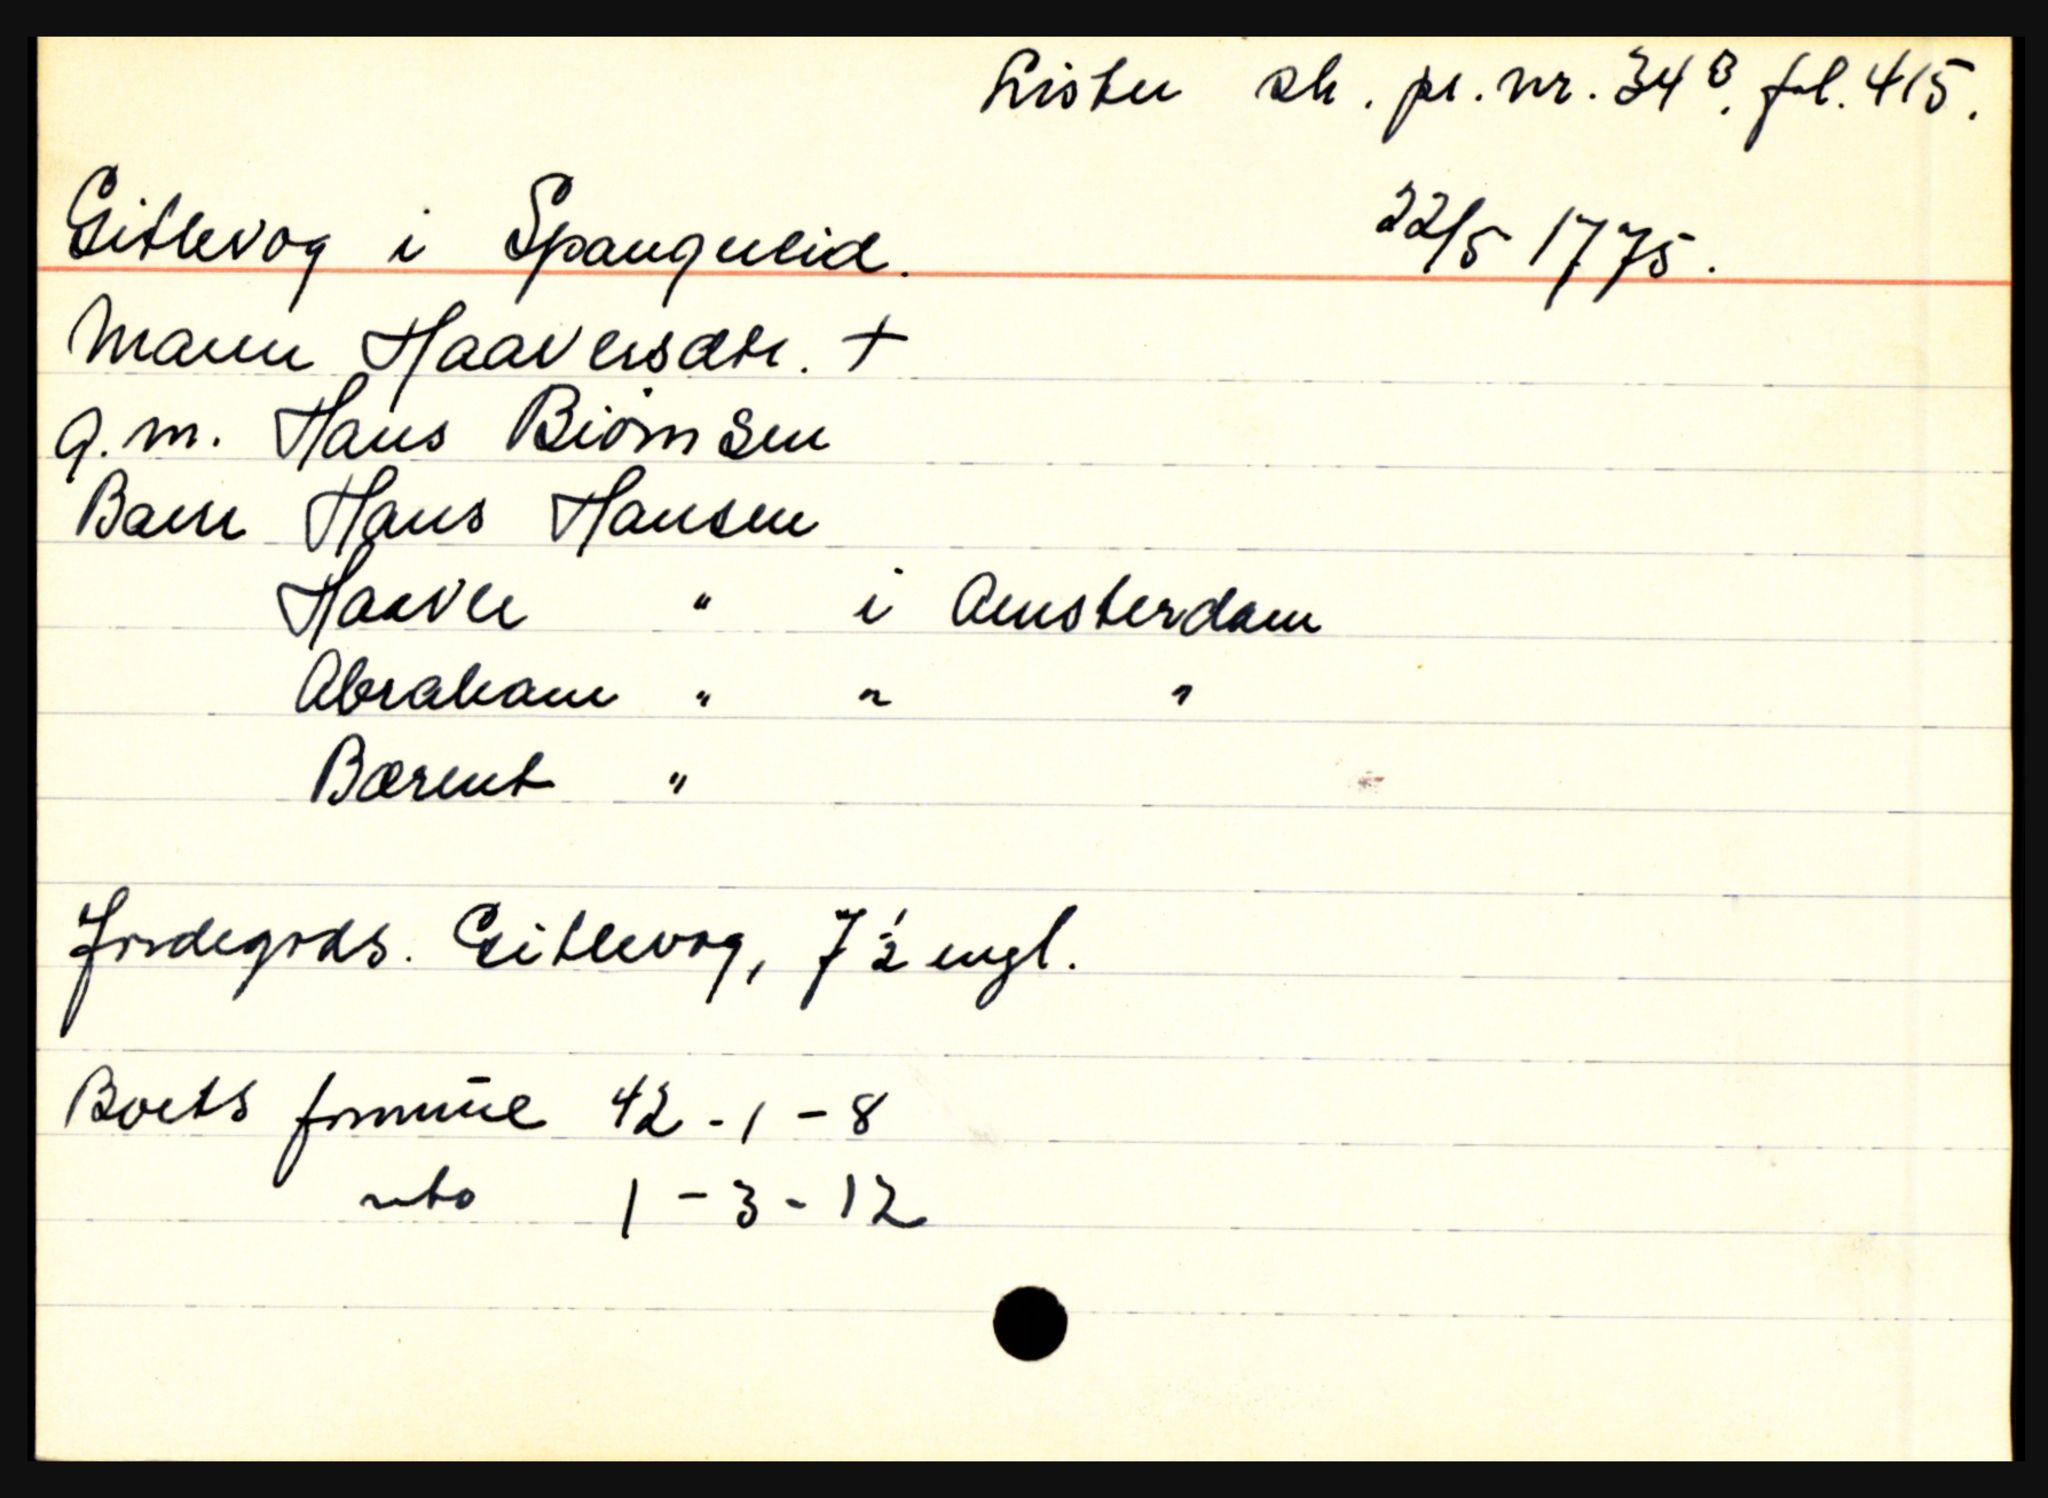 Lister sk. pr. nr. 34 B. fol. 415.
Gitlevog i Spangereid. 22/5 1775.
Maren Haaversdtr. +
g. m. Hans Biørnsen
Barn Hans Hansen
Haaver " i Amsterdam
Abraham " " "
Bærent "
Jordegods. Gitlevog, 7 1/2 engl.
Boets formue 42 - 1 - 8
nto 1 - 3 - 12